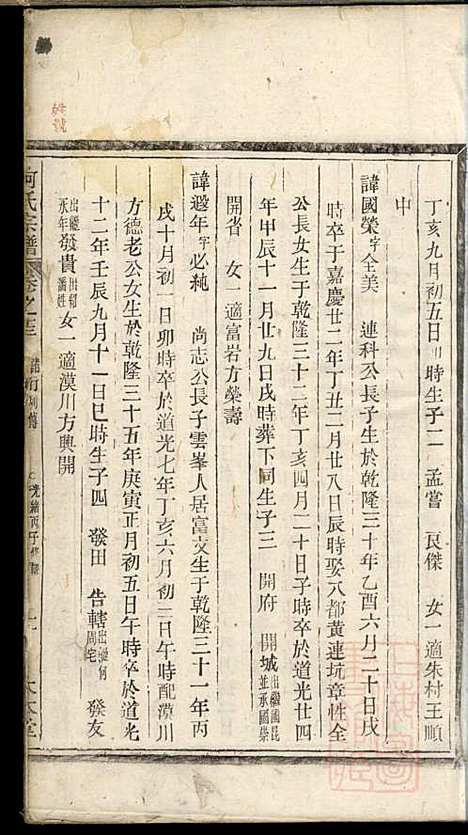 丁亥九月初五日時生子二 孟嘗 良傑 女一適朱村王順
中
諱國榮字全美 連科公長子生於乾隆三十年乙酉六月二十日戌
時卒于嘉慶廿二年丁丑二月廿八日辰時娶八都黄連坑章性全
公長女生于乾隆三十二年丁亥四月二十日子時卒於道光廿四
年甲辰十一月廿九日戌時葬下同生子三 開府 開城出繼國昆並承國崇
開省 女一適富岩方榮壽
諱遐年字必純 尚志公長子雲峯人居富交生于乾隆三十一年丙
戌十月初一日卯時卒於道光七年丁亥六月初二日午時配漠川
方德老公女生於乾隆三十五年庚寅正月初五日午時卒於道光
十二年壬辰九月十一日巳時生子四 發田 告轄出繼何周宅 發友
出繼永年發貴出紹潘姓女一適漠川方興開
何氏宗譜 卷之 行列傳 光緒丙子 本堂